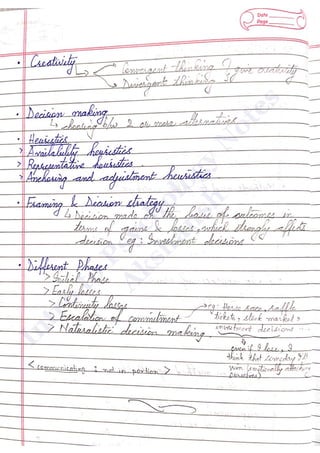 Date
Page
• Creativity
> Convergent thinking } give creativity
> Divergent thinking
• Decision making
↳ choosing b/w 2 or more alternatives
• Heuristics
> Availability heuristics
> Representative heuristics.
> Anchoring and adjustment heuristics
• Framing & Decision strategy
↳ Decision made on the basis of outcomes in
terms of gains & losses, which strongly affects
decision eg: Investment decisions
• Different Phases
> Initial Phase
> Early losses
> Continuity losses
> Escalation of commitment
> Naturalistic decision making
→ eg: Horse races, raffle
tickets, stock market,
investment decisions
even if I lose, I
think that someday I'll
win (emotionally attaching
ourselves)
< communicating : not in portion >
Notes